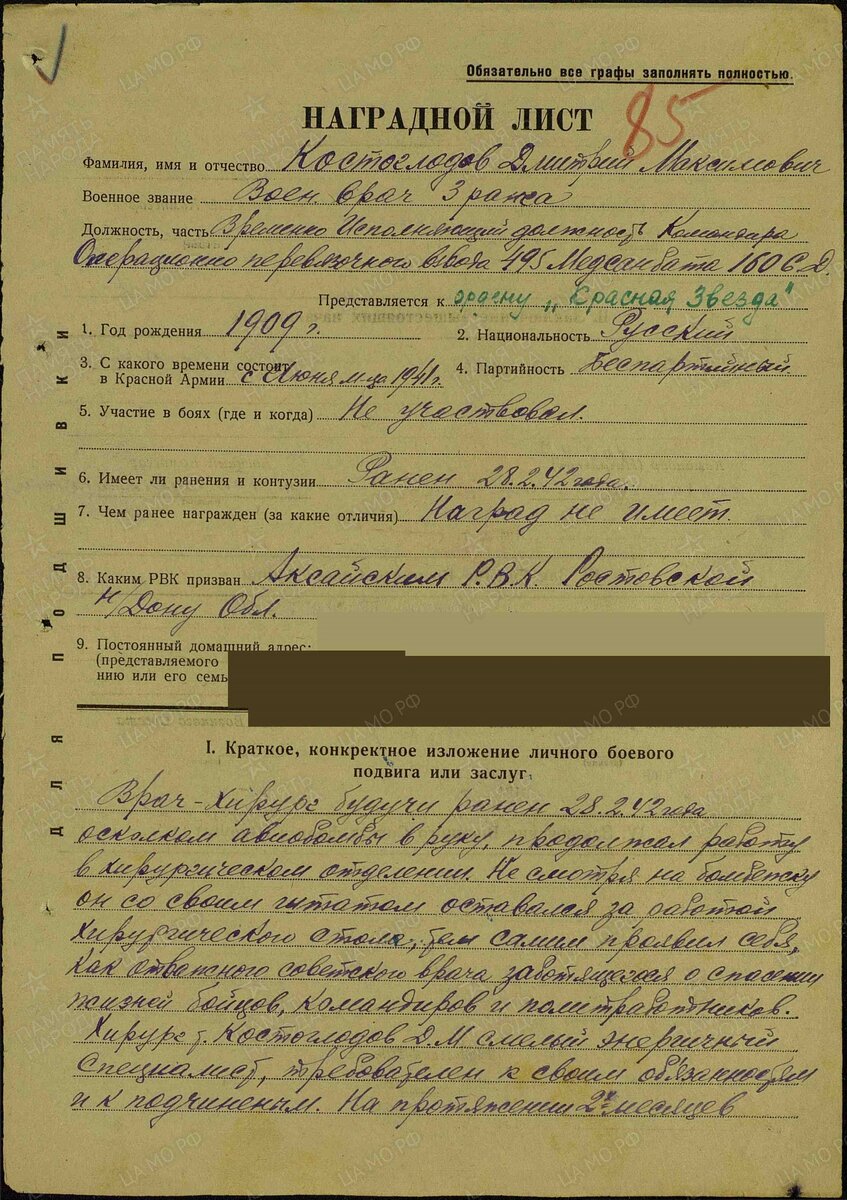 Обязательно все графы заполнять полностью.
85
НАГРАДНОЙ ЛИСТ
Фамилия, имя и отчество Костоглодов Дмитрий Максимович
Военное звание Воен. врач 3 ранга
Должность, часть Временно Исполняющий должность Командира
Операционно перевязочного взвода 495 Медсанбата 160 С.Д.
Представляется к ордену „Красная Звезда"
1. Год рождения 1909 г.
2. Национальность Русский
3. С какого времени состоит
в Красной Армии с Июня м-ца 1941г.
4. Партийность Беспартийный
5. Участие в боях (где и когда) Не участвовал.
6. Имеет ли ранения и контузии Ранен 28.2.42 года.
7. Чем ранее награжден (за какие отличия) Наград не имеет.
8. Каким РВК призван Аксайским Р.В.К. Ростовской
н/Дону Обл.
9. Постоянный домашний адрес:
(представляемого
нию или его семь
ДЛЯ ПОДШИВКИ
I. Краткое, конкретное изложение личного боевого
подвига или заслуг.
Врач-Хирург будучи ранен 28.2.42 года
осколком авиобомбы в руку, продолжал работу
в хирургическом отделении. Не смотря на бомбежку
он со своим штатом оставался за работой
хирургического стола, тем самим проявил себя,
как отважного советского врача заботящегося о спасении
жизней бойцов, командиров и политработников.
Хирург т. Костоглодов Д.М смелый энергичный
специалист, требователен к своим обязанностям
и к подчиненым. На протяжении 2х месяцев
ПАМЯТЬ НАРОДА
ЦАМО.РФ